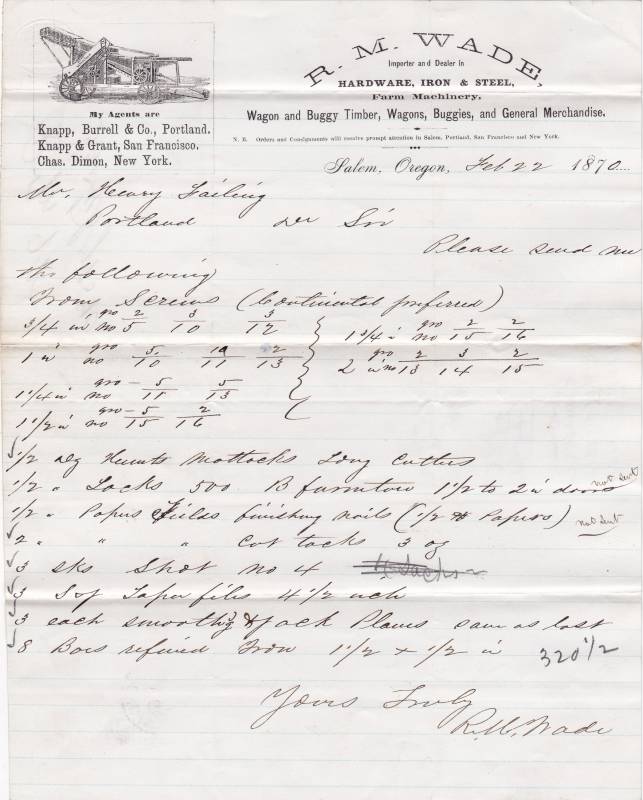 R. M. WADE,
Importer and Dealer in
HARDWARE, IRON & STEEL,
Farm Machinery,
Wagon and Buggy Timber, Wagons, Buggies, and General Merchandise.
N. B. Orders and Consignments will receive prompt attention in Salem, Portland, San Francisco and New York.
My Agents are
Knapp, Burrell & Co., Portland.
Knapp & Grant, San Francisco.
Chas. Dimon, New York.
Salem, Oregon, Feb 22 1870
Mr. Henry Failing
Portland Dr Sir
Please send me
the following
Iron Screws (Continental preferred)
3/4 in gro no 2/5 3/10 3/12
1 in gro no 5/10 10/11 2/13
1 1/4 in gro no 5/11 5/13
1 1/2 in gro no 5/15 2/16
1 3/4 in gro no 2/15 2/16
2 in gro no 2/13 3/14 2/15
1/2 dz Hunts Mattocks Long Cutters
1/2 " Locks 500 B furniture 1 1/2 to 2 in doors not sent
1/2 " Papers Fields finishing nails (1/2 Papers) not sent
2 " " " Cut tacks 3 oz
3 sks Shot no 4
3 Taper files 4 1/2 inch
3 each smoothing & Jack Planes same as last
8 Bars refined Iron 1 1/2 x 1/2 in 320 1/2
Yours Truly
R. M. Wade